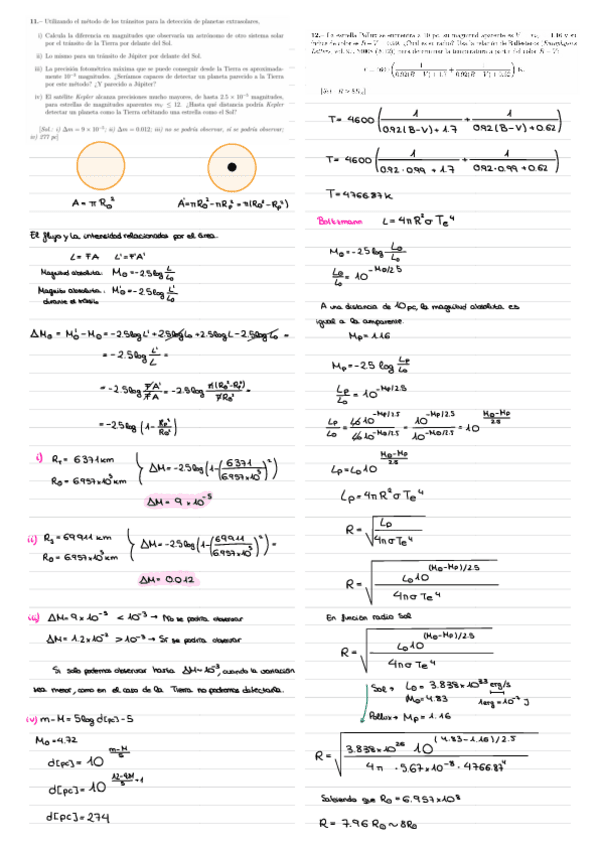 11.- Utilizando el método de los tránsitos para la detección de planetas extrasolares,
i) Calcula la diferencia en magnitudes que observaría un astrónomo de otro sistema solar
por el tránsito de la Tierra por delante del Sol.
ii) Lo mismo para un tránsito de Júpiter por delante del Sol.
iii) La precisión fotométrica máxima que se puede conseguir desde la Tierra es aproximada-
mente 10⁻³ magnitudes. ¿Seríamos capaces de detectar un planeta parecido a la Tierra
por este método? ¿Y parecido a Júpiter?
iv) El satélite Kepler alcanza precisiones mucho mayores, de hasta 2.5 × 10⁻⁵ magnitudes,
para estrellas de magnitudes aparentes mV ≤ 12. ¿Hasta qué distancia podría Kepler
detectar un planeta como la Tierra orbitando una estrella como el Sol?
[Sol.: i) Δm = 9 × 10⁻⁵; ii) Δm = 0.012; iii) no se podría observar, sí se podría observar;
iv) 277 pc]
A = π R₀²
A' = πR₀² - πRp² = π(R₀² - Rp²)
El flujo y la intensidad relacionados por el área.
L = FA L' = F'A'
Magnitud absoluta: M₀ = -2.5 log L/L₀
Magnitud absoluta durante el tránsito: M₀' = -2.5 log L'/L₀
ΔM₀ = M₀' - M₀ = -2.5 log L' + 2.5 log L₀ + 2.5 log L - 2.5 log L₀ =
= -2.5 log L'/L =
= -2.5 log F A'/F A = -2.5 log π(R₀² - Rp²)/πR₀² =
= -2.5 log (1 - Rp²/R₀²)
i) R_T = 6371 km
R₀ = 6.957×10⁵ km
ΔM = -2.5 log (1 - (6371/6.957×10⁵)²)
ΔM = 9 × 10⁻⁵
ii) R_J = 69911 km
R₀ = 6.957×10⁵ km
ΔM = -2.5 log (1 - (69911/6.957×10⁵)²) =
ΔM = 0.012
iii) ΔM = 9×10⁻⁵ < 10⁻³ → No se podría observar
ΔM = 1.2×10⁻² > 10⁻³ → Sí se podría observar
Si solo podemos observar hasta ΔM ~ 10⁻³, cuando la variación
sea menor, como en el caso de la Tierra no podremos detectarla.
iv) m - M = 5 log d[pc] - 5
M₀ = 4.72
d[pc] = 10
d[pc] = 10
d[pc] = 274
T = 4600 (1/(0.92(B-V)+1.7) + 1/(0.92(B-V)+0.62))
T = 4600 (1/(0.92·0.99+1.7) + 1/(0.92·0.99+0.62))
T = 4766.87 K
Boltzmann L = 4πR²σTe⁴
M₀ = -2.5 log L₀/L₀
L₀/L₀ = 10^(-M₀/2.5)
A una distancia de 10 pc, la magnitud absoluta es
igual a la aparente.
Mp = 1.16
Mp = -2.5 log Lp/L₀
Lp/L₀ = 10^(-Mp/2.5)
Lp/L₀ = 10^(-Mp/2.5)/10^(-M₀/2.5) = 10^((M₀-Mp)/2.5)
Lp = L₀ 10^((M₀-Mp)/2.5)
Lp = 4πR²σTe⁴
R = √(Lp/4πσTe⁴)
R = √(L₀ 10^((M₀-Mp)/2.5)/4πσTe⁴)
En función radio Sol
R = √(L₀ 10^((M₀-Mp)/2.5)/4πσTe⁴)
Sol → L₀ = 3.838×10³³ erg/s
M₀ = 4.83 1erg = 10⁻⁷ J
Pollux → Mp = 1.16
R = √(3.838×10²⁶ 10^((4.83-1.16)/2.5)/4π · 5.67×10⁻⁸ · 4766.87⁴)
Sabiendo que R₀ = 6.957×10⁸
R = 7.96 R₀ ~ 8R₀